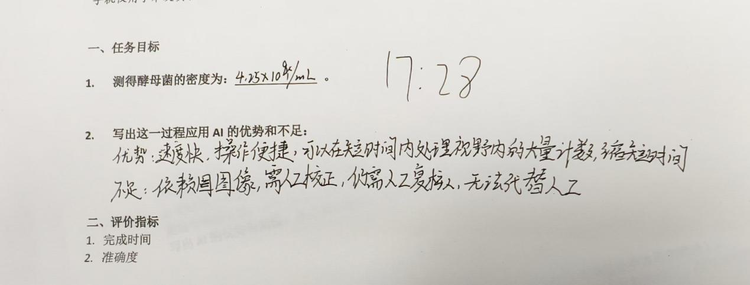 一、任务目标
17:28
1. 测得酵母菌的密度为: 4.25×10 个/mL 。
2. 写出这一过程应用 AI 的优势和不足:
优势:速度快,操作便捷,可以在短时间内处理视野内的大量计数,缩短时间
不足:依赖图像,需人工校正,仍需人工复核,无法代替人工
二、评价指标
1. 完成时间
2. 准确度